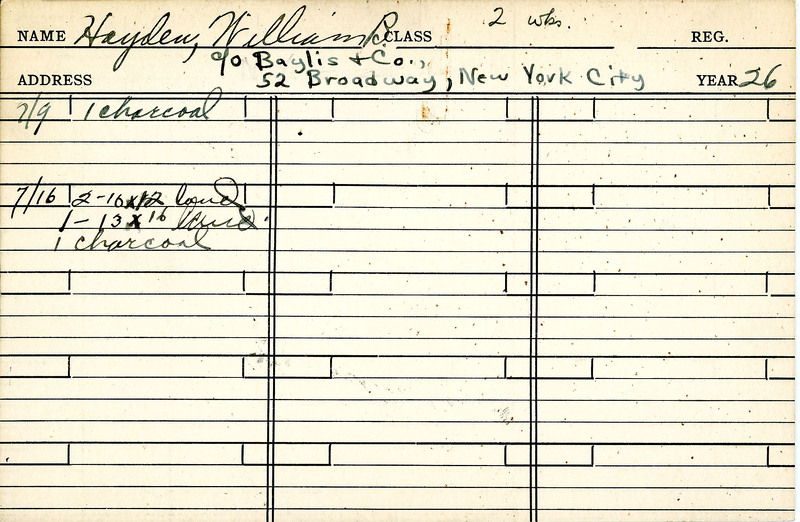 NAME Hayden, William R. CLASS 2 wks. REG.
c/o Baylis & Co.,
ADDRESS 52 Broadway, New York City YEAR 26
7/9 1 charcoal
7/16 2-16x12 land
1-13x16 land
1 charcoal